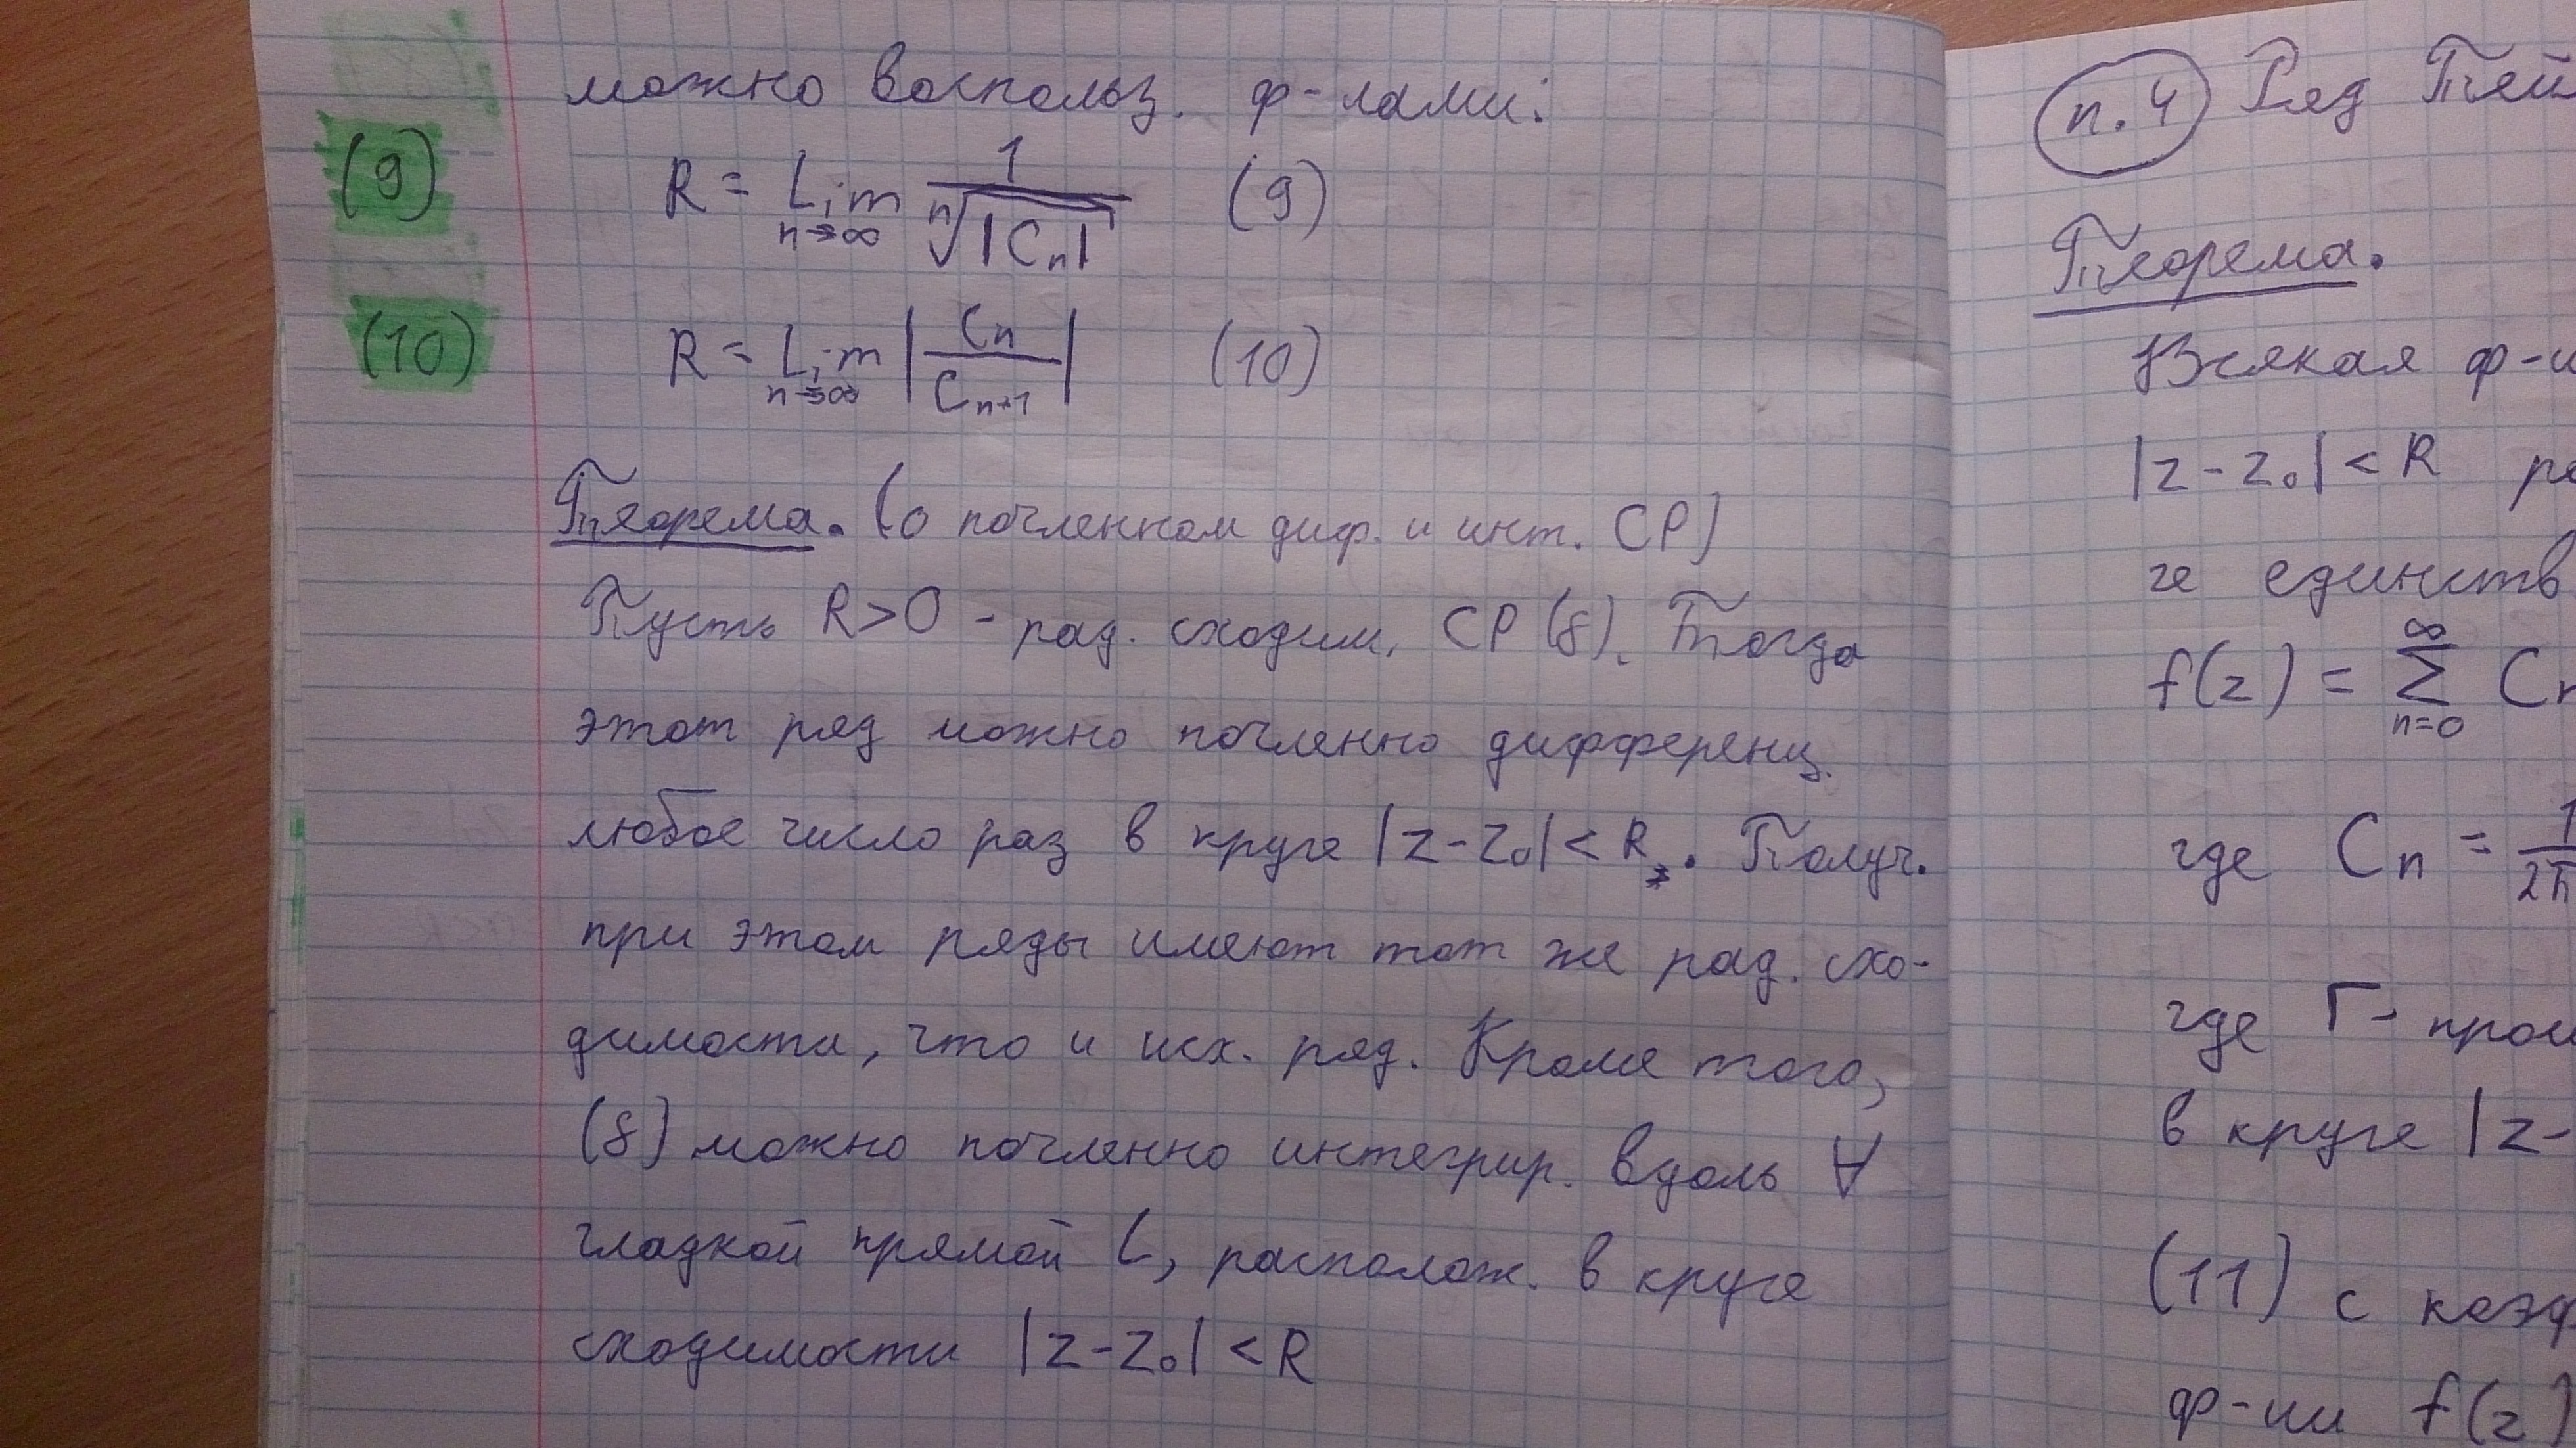 можно воспольз. ф-лами:
(9) R = Lim n→∞ 1/ⁿ√|Cn| (9)
(10) R = Lim n→∞ |Cn/Cn+1| (10)
Теорема. (о почленном диф. и инт. СР)
Пусть R>0 - рад. сходим. СР (8). Тогда
этот ряд можно почленно дифференц.
любое число раз в круге |z-z₀|<R. Получ.
при этом ряды имеют тот же рад. схо-
димости, что и исх. ряд. Кроме того,
(8) можно почленно интегрир. вдоль ∀
гладкой прямой L, располож. в круге
сходимости |z-z₀|<R
п.4 Ряд Тей
Теорема.
Всякая ф-
|z-z₀|<R
единств
f(z) = ∑ n=0 ∞ Cn
где Cn = 1/2π
где Г-
в круге |z-
(11) с коэф
ф-ии f(z)